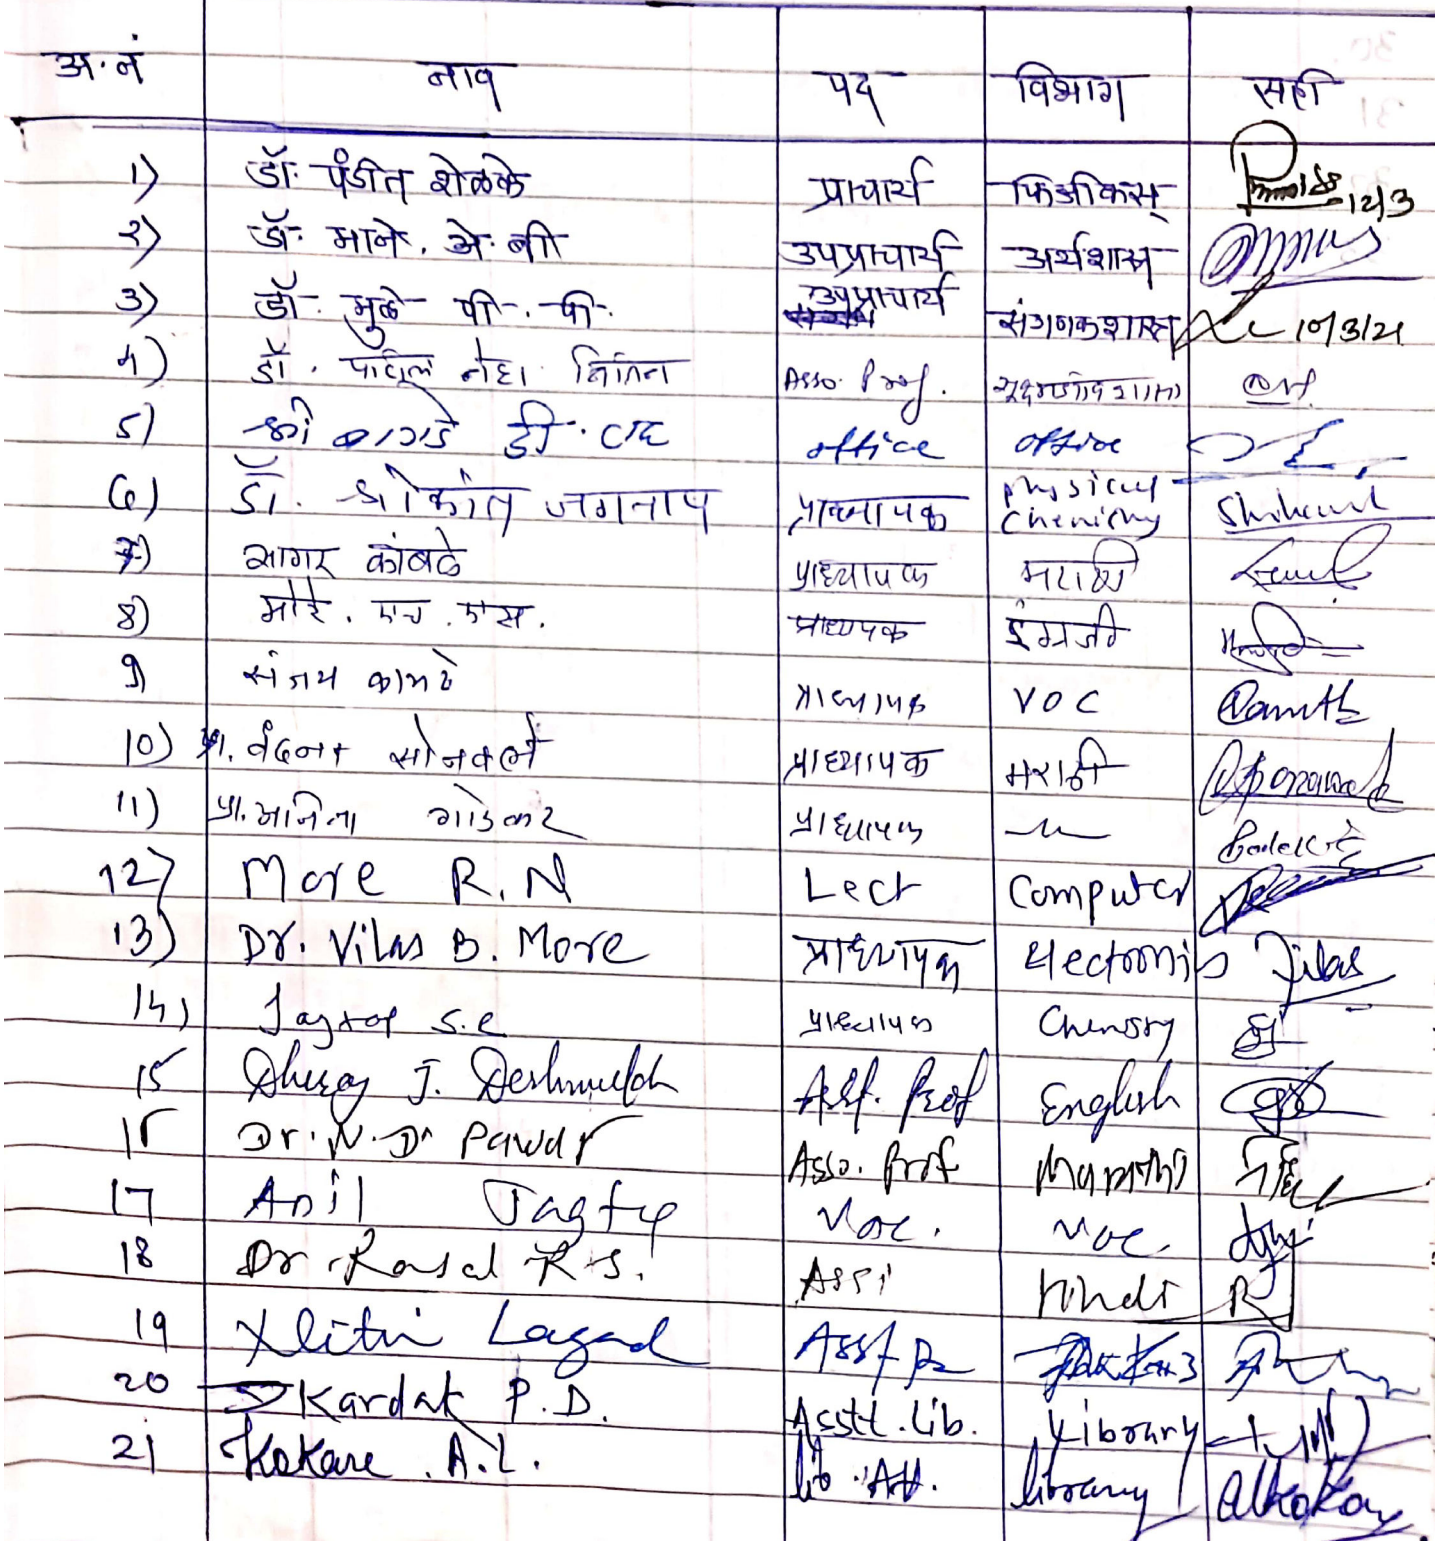 अ.नं नाव पद विभाग सही
1) डॉ. पंडीत शेळके प्राचार्य फिजीकस् 12/3
2) डॉ. माने. अे. बी उपप्राचार्य अर्थशास्त्र
3) डॉ. मुळे पी. पी. उपप्राचार्य संगणकशास्त्र 10/3/21
4) डॉ. पाटील नेहा नितिन Asso. Prof.
5) श्री डी. office office
6) डॉ. श्रीकांत जगताप प्राध्यापक physical chemistry Shrikant
7) सागर कांबळे प्राध्यापक मराठी
8) मोरे. एच. एस. प्राध्यापक इंग्रजी
9) संजय कामठे प्राध्यापक VOC
10) प्रा. वंदना सोनवले प्राध्यापक मराठी
11) प्रा. अनिता गोडेकर प्राध्यापक —"—
12) More R.N Lect Computer
13) Dr. Vilas B. More प्राध्यापक Electronis Vilas
14) Jagtap S.e प्राध्यापक
15 Dhiraj J. Deshmukh Asst. Prof English
16 Dr. N. D. Pawar Asso. Prof Marathi
17 Anil Jagtap Voc. Voc
18 Dr. Rasal R.S. Assi Hindi R
19 Lagad Asst Pr
20 Kardak P.D. Asstt. Lib. Library
21 Kokare. A.L. lib. Att. library Alkokare